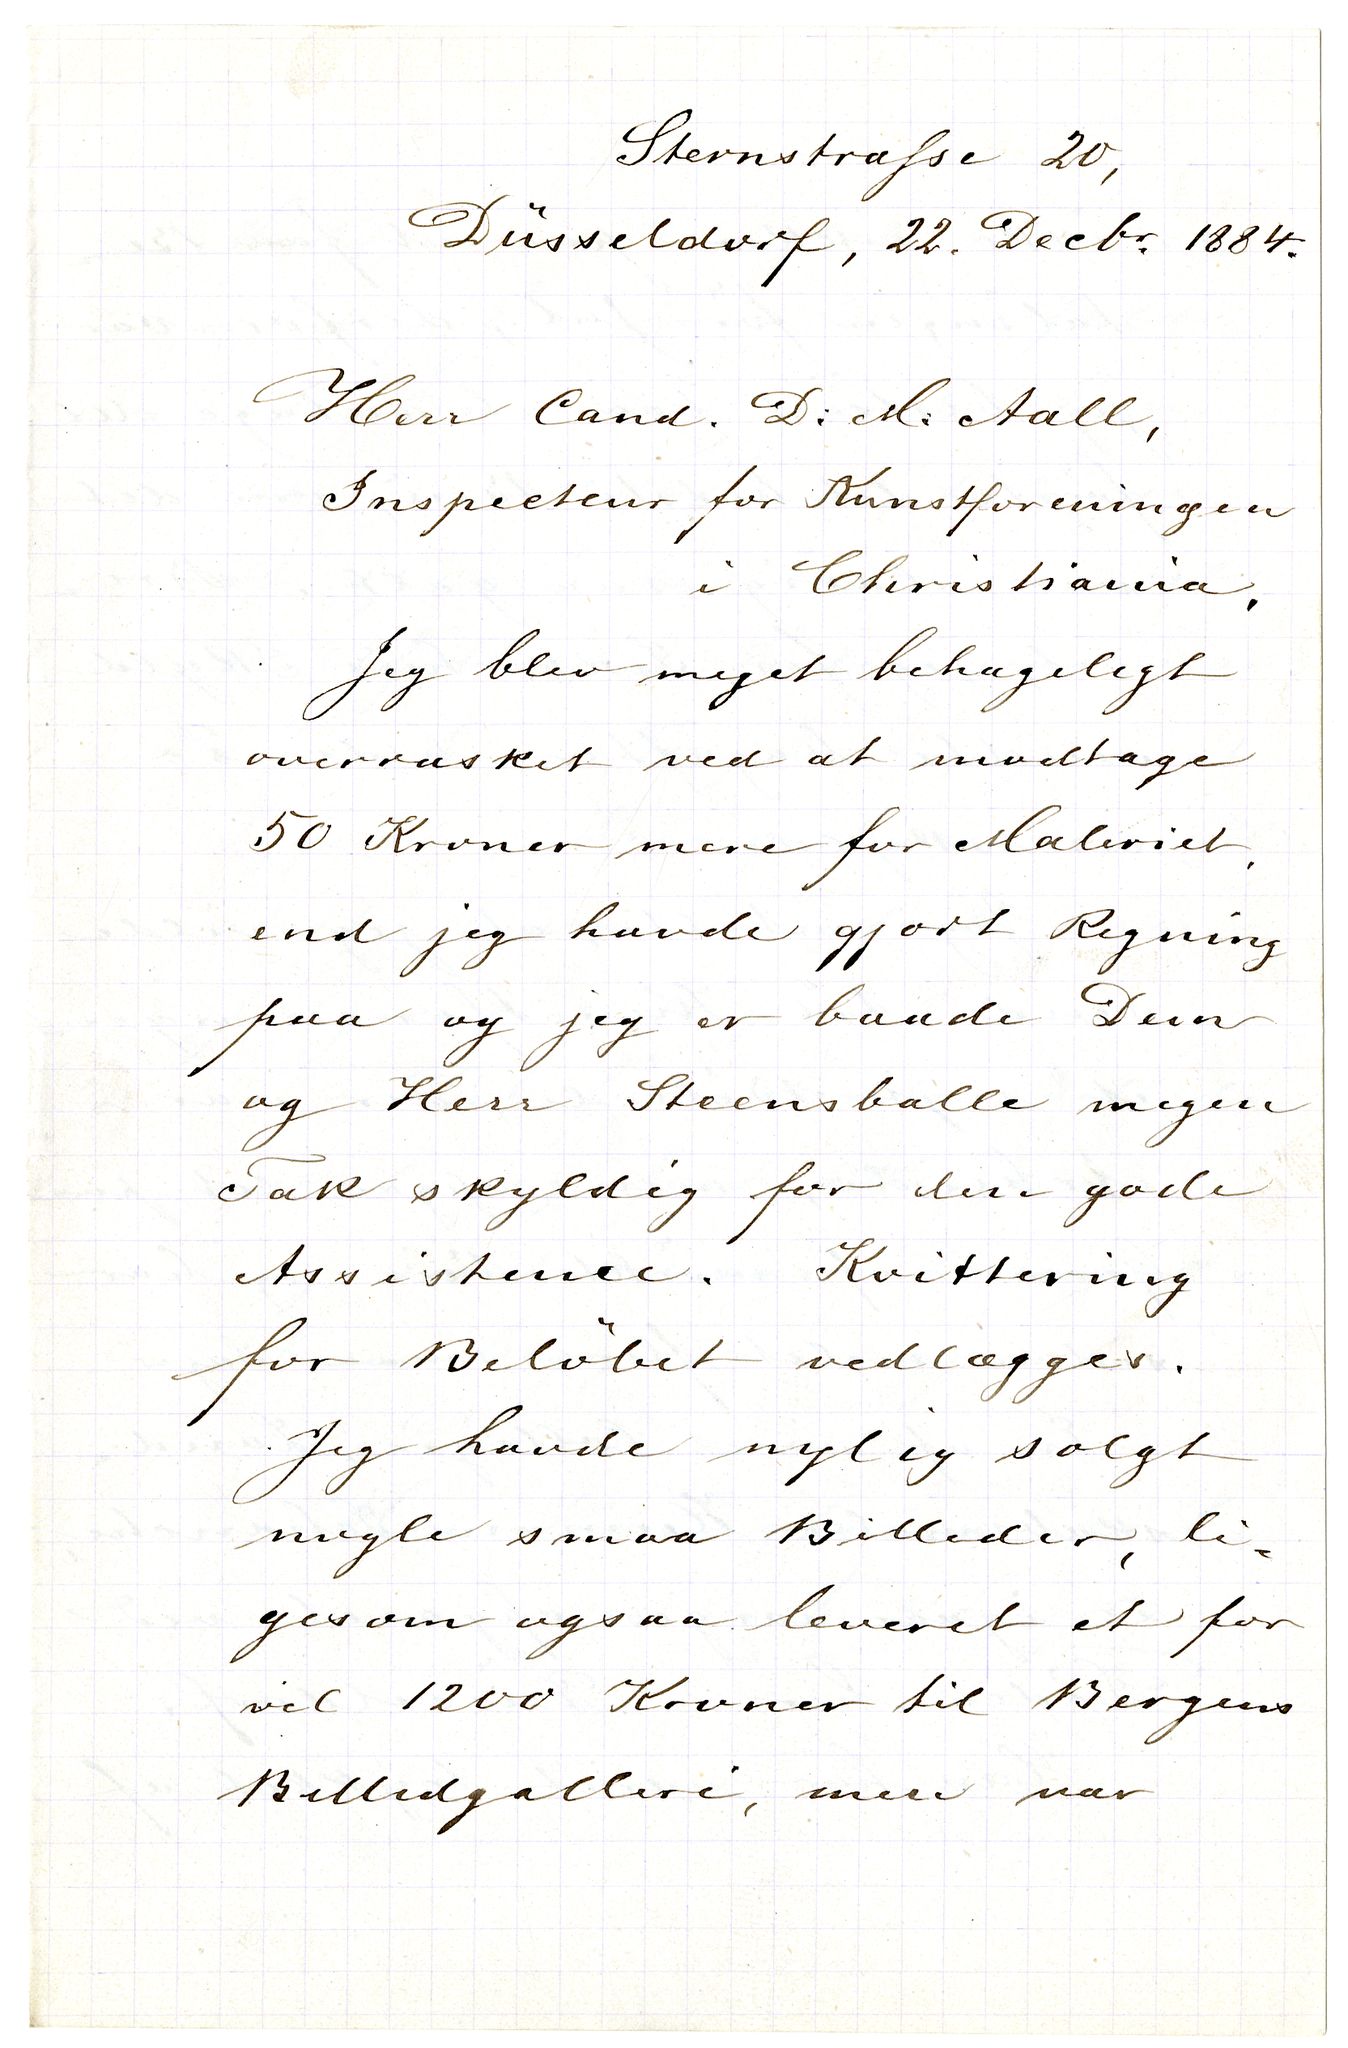 Sternstrasse 20,
Düsseldorf, 22. Decbr. 1884.
Herr Cand. D: M: Aall,
Inspecteur for Kunstforeningen
i Christiania.
Jeg blev meget behageligt
overrasket ved at modtage
50 Kroner mere for Maleriet,
end jeg havde gjort Regning
paa og jeg er baade Dem
og Herr Steensballe megen
Tak skyldig for den gode
Assistence. Kvittering
for Belöbet vedlægges.
Jeg havde nylig solgt
nogle smaa Billeder, li-
gesom ogsaa leveret et for
vel 1200 Kroner til Bergens
Billedgalleri, men var